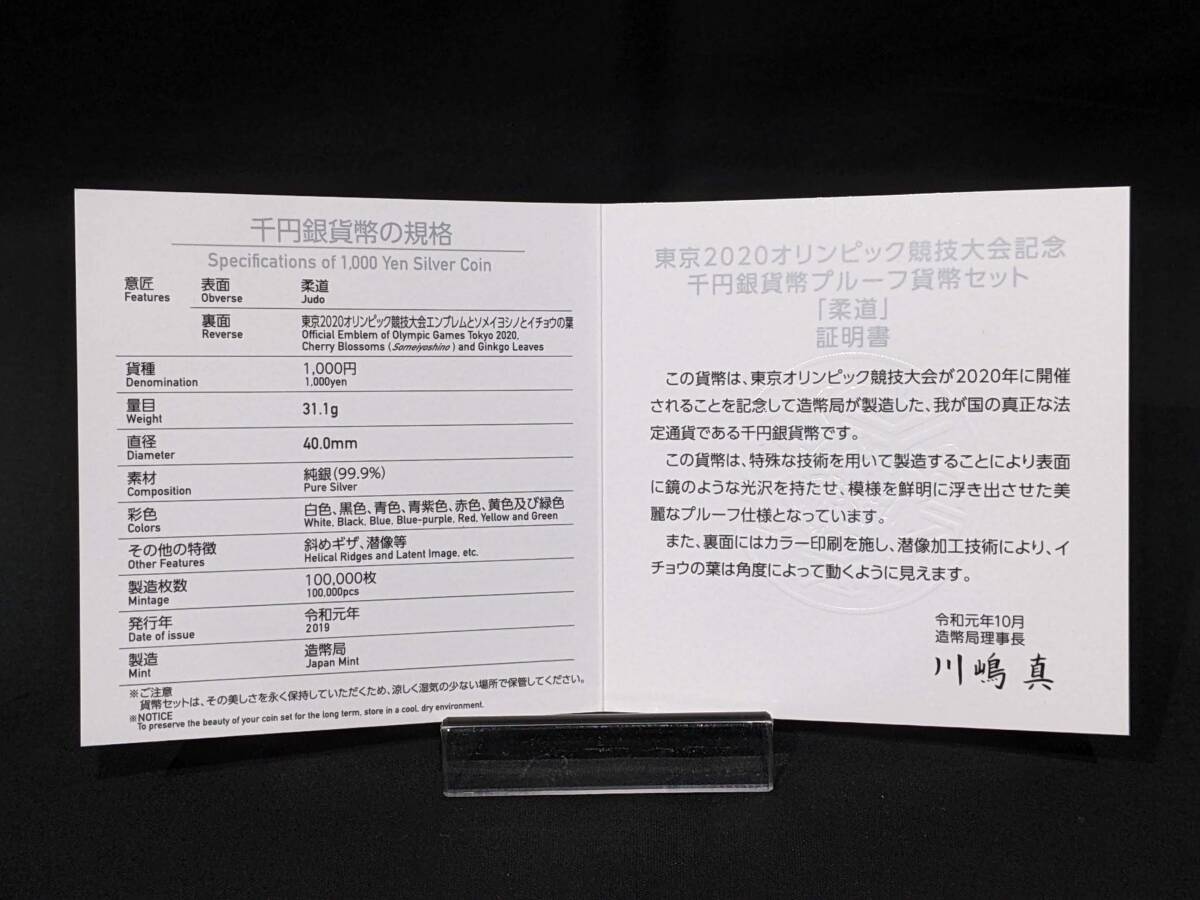 千円銀貨幣の規格
Specifications of 1,000 Yen Silver Coin
意匠 表面 柔道
Features Obverse Judo
裏面 東京2020オリンピック競技大会エンブレムとソメイヨシノとイチョウの葉
Reverse Official Emblem of Olympic Games Tokyo 2020,
Cherry Blossoms (Someiyoshino) and Ginkgo Leaves
貨種 1,000円
Denomination 1,000yen
量目 31.1g
Weight
直径 40.0mm
Diameter
素材 純銀(99.9%)
Composition Pure Silver
彩色 白色、黒色、青色、青紫色、赤色、黄色及び緑色
Colors White, Black, Blue, Blue-purple, Red, Yellow and Green
その他の特徴 斜めギザ、潜像等
Other Features Helical Ridges and Latent Image, etc.
製造枚数 100,000枚
Mintage 100,000pcs
発行年 令和元年
Date of issue 2019
製造 造幣局
Mint Japan Mint
※ご注意
貨幣セットは、その美しさを永く保持していただくため、涼しく湿気の少ない場所で保管してください。
※NOTICE
To preserve the beauty of your coin set for the long term, store in a cool, dry environment.
東京2020オリンピック競技大会記念
千円銀貨幣プルーフ貨幣セット
「柔道」
証明書
この貨幣は、東京オリンピック競技大会が2020年に開催
されることを記念して造幣局が製造した、我が国の真正な法
定通貨である千円銀貨幣です。
この貨幣は、特殊な技術を用いて製造することにより表面
に鏡のような光沢を持たせ、模様を鮮明に浮き出させた美
麗なプルーフ仕様となっています。
また、裏面にはカラー印刷を施し、潜像加工技術により、イ
チョウの葉は角度によって動くように見えます。
令和元年10月
造幣局理事長
川嶋 真